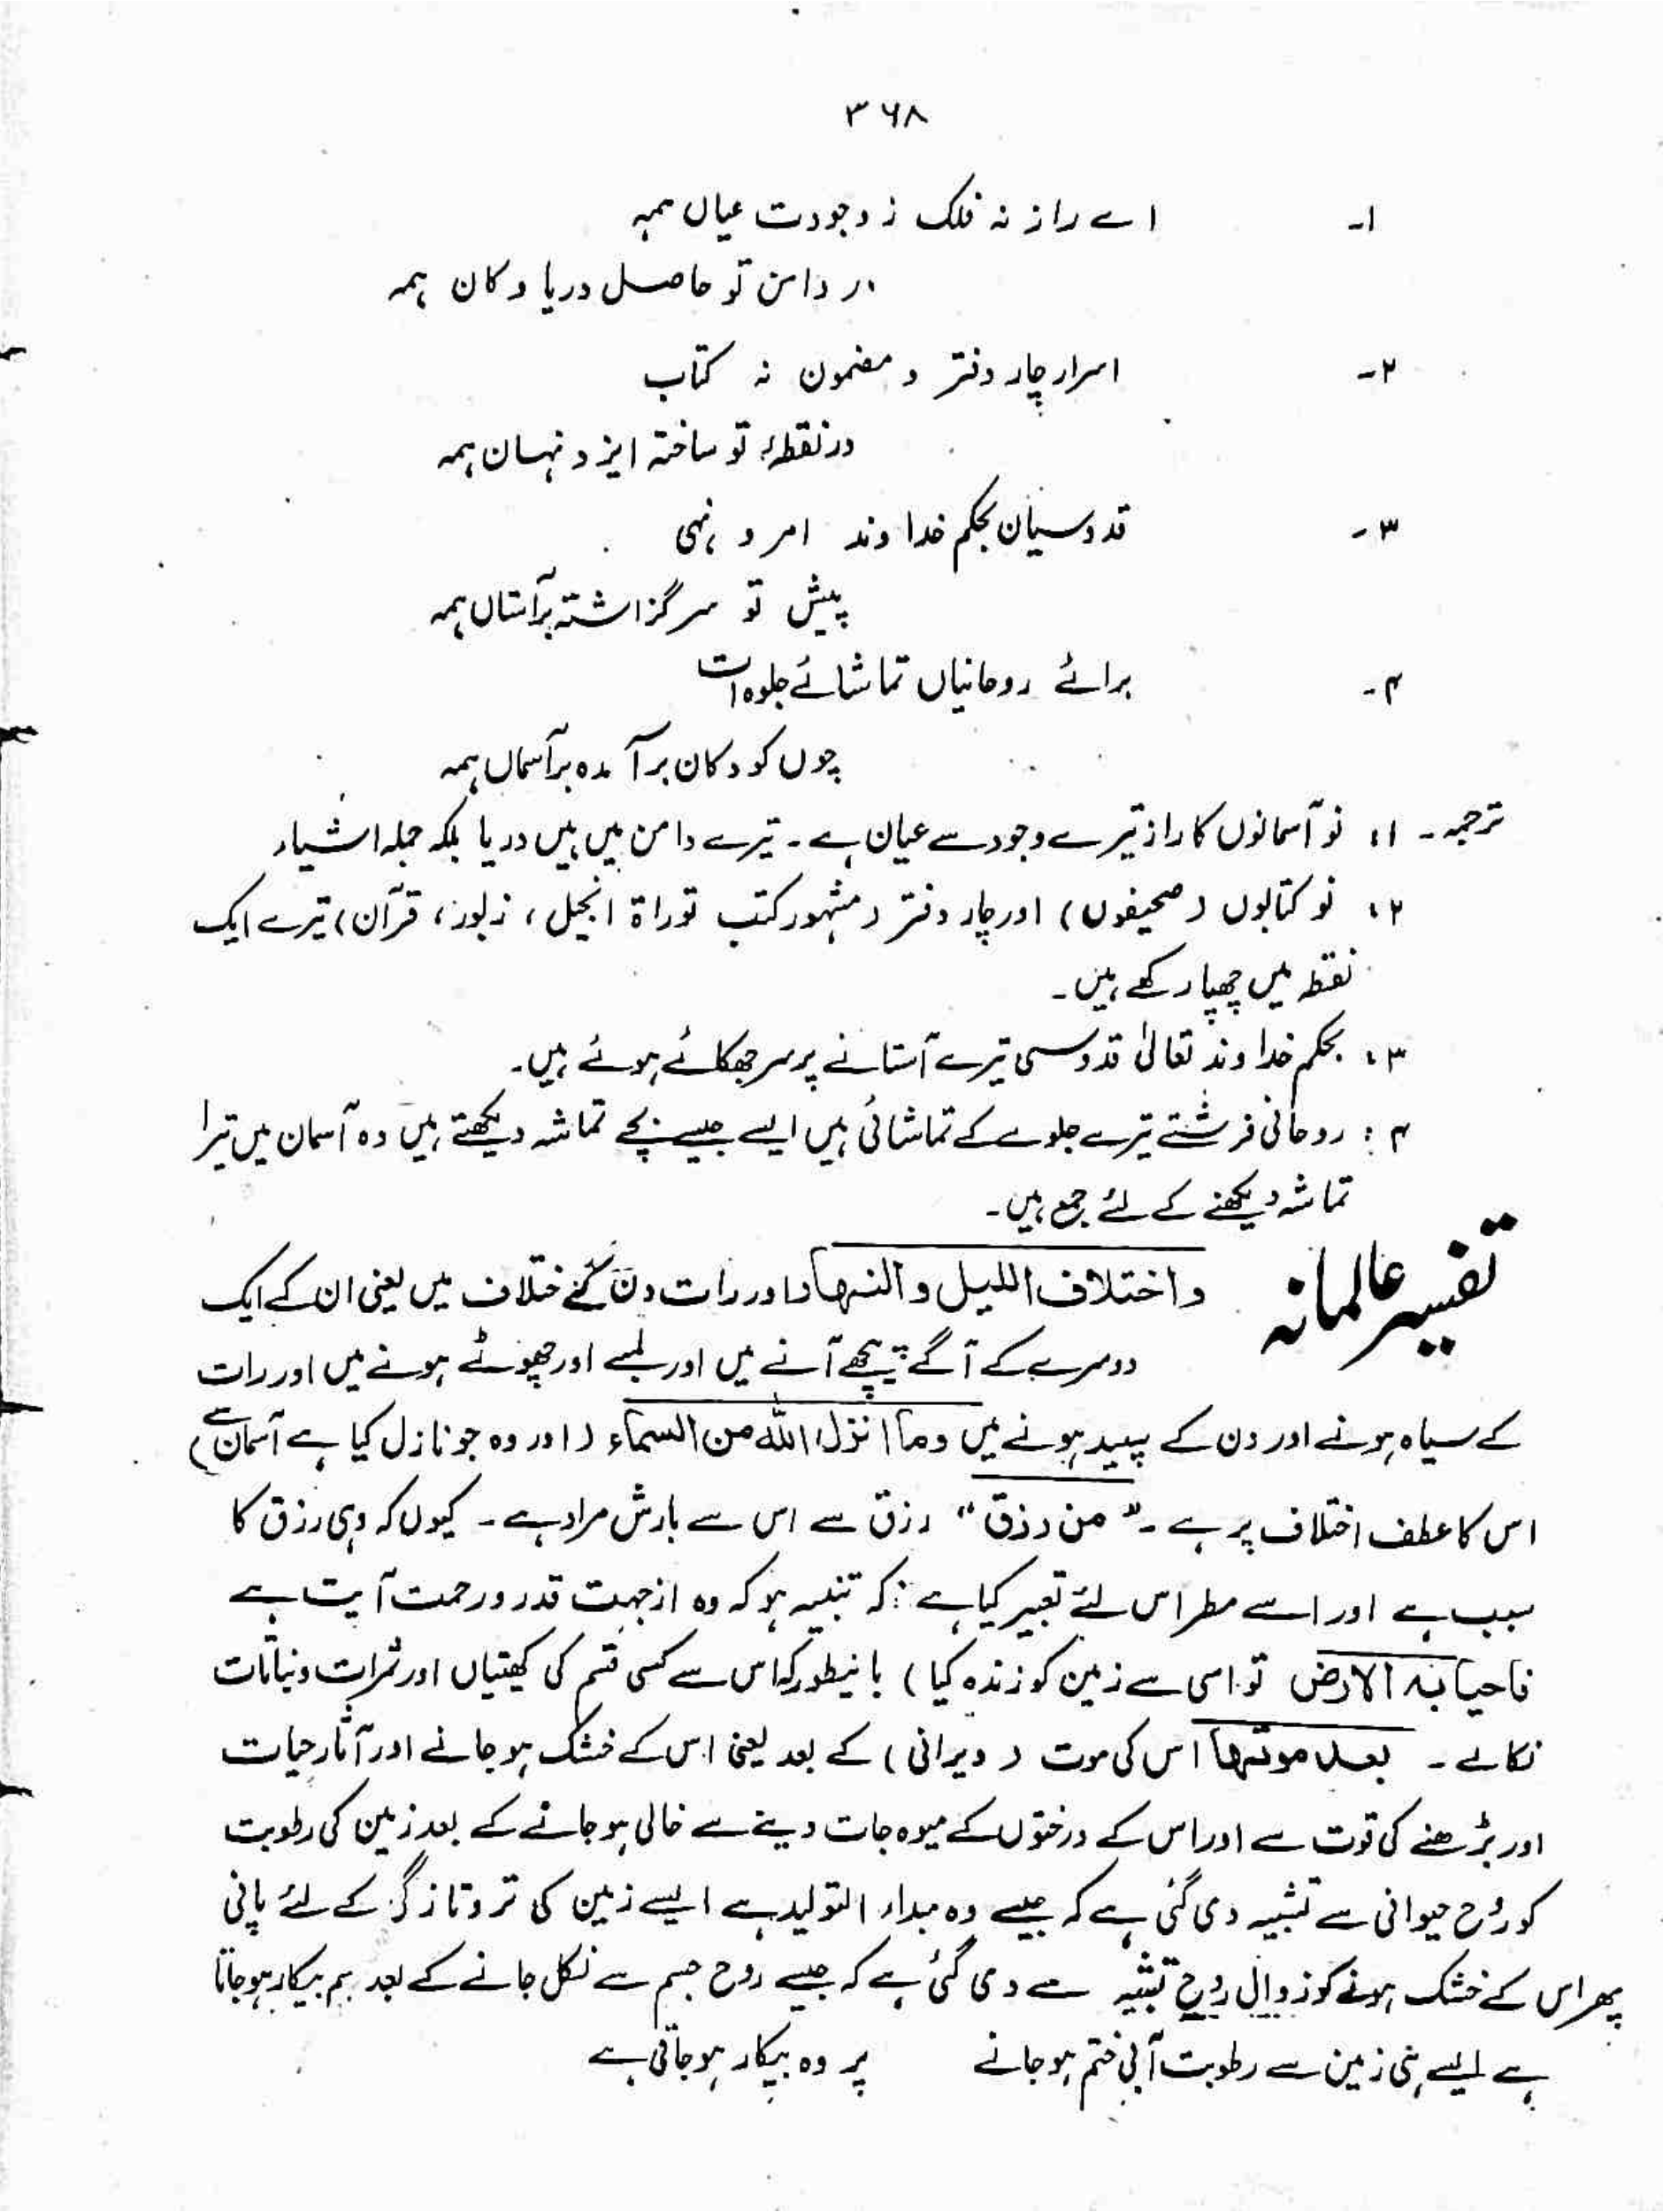 ۳۶۸
۱۔ اے راز نہ فلک ز وجودت عیاں ہمہ
در دامن تو حاصل دریا و کان ہمہ
۲۔ اسرار چار دفتر و مضمون نہ کتاب
در نقطۂ تو ساختہ ایزد نہان ہمہ
۳۔ قدوسیان بحکم خداوند امر و نہی
پیش تو سر گزاشتہ برآستاں ہمہ
۴۔ برائے روحانیاں تماشائے جلوہ ات
چوں کودکان برآمدہ برآسماں ہمہ
ترجمہ۔ ۱: نو آسمانوں کا راز تیرے وجود سے عیان ہے۔ تیرے دامن میں ہیں دریا بلکہ جملہ اشیاء
۲: نو کتابوں (صحیفوں) اور چار دفتر (مشہور کتب توراۃ انجیل، زبور، قرآن) تیرے ایک
نقطہ میں چھپا رکھے ہیں۔
۳: بحکم خداوند تعالیٰ قدوسی تیرے آستانے پر سر جھکائے ہوئے ہیں۔
۴: روحانی فرشتے تیرے جلوے کے تماشائی ہیں ایسے جیسے بچے تماشہ دیکھتے ہیں وہ آسمان میں تیرا
تماشہ دیکھنے کے لئے جمع ہیں۔
تفسیر عالمانہ واختلاف اللیل والنہار اور رات دن کے ختلاف میں یعنی ان کے ایک
دوسرے کے آگے پیچھے آنے میں اور لمبے اور چھوٹے ہونے میں اور رات
کے سیاہ ہونے اور دن کے سپید ہونے میں وما انزل اللہ من السماء (اور وہ جو نازل کیا ہے آسمان سے)
اس کا عطف اختلاف پر ہے۔ "من رزق" رزق سے اس سے بارش مراد ہے۔ کیوں کہ وہی رزق کا
سبب ہے اور اسے مطر اس لئے تعبیر کیا ہے: کہ تنبیہ ہو کہ وہ از جہت قدر و رحمت آیت ہے
فاحیا بہ الارض تو اسی سے زمین کو زندہ کیا) بانیطور کہ اس سے کسی قسم کی کھیتیاں اور ثمرات و نباتات
نکالے۔ بعد موتہا اس کی موت (ویرانی) کے بعد یعنی اس کے خشک ہو جانے اور آثار حیات
اور بڑھنے کی قوت سے اور اس کے درختوں کے میوہ جات دینے سے خالی ہو جانے کے بعد زمین کی رطوبت
کو روح حیوانی سے تشبیہ دی گئی ہے کہ جیسے وہ مبداء التولید ہے ایسے زمین کی تر و تازگی کے لئے پانی
پھر اس کے خشک ہونے کو زوال روح تشبیہ سے دی گئی ہے کہ جیسے روح جسم سے نکل جانے کے بعد بیکار ہو جاتا
ہے ایسے ہی زمین سے رطوبت آبی ختم ہو جانے پر وہ بیکار ہو جاتی ہے